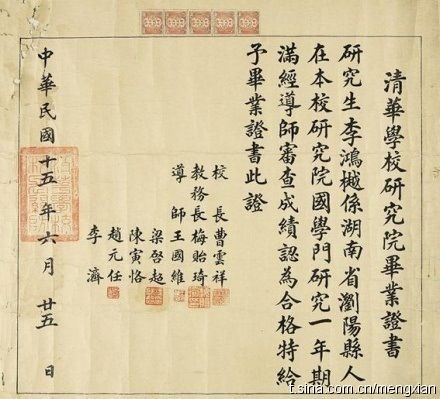 清華學校研究院畢業證書
研究生李鴻樾係湖南省瀏陽縣人
在本校研究院國學門研究一年期
滿經導師審查成績認為合格特給
予畢業證書此證
校長曹雲祥
教務長梅貽琦
導師王國維
梁啓超
陳寅恪
趙元任
李濟
中華民國十五年六月廿五日
t.sina.com.cn/mengxian